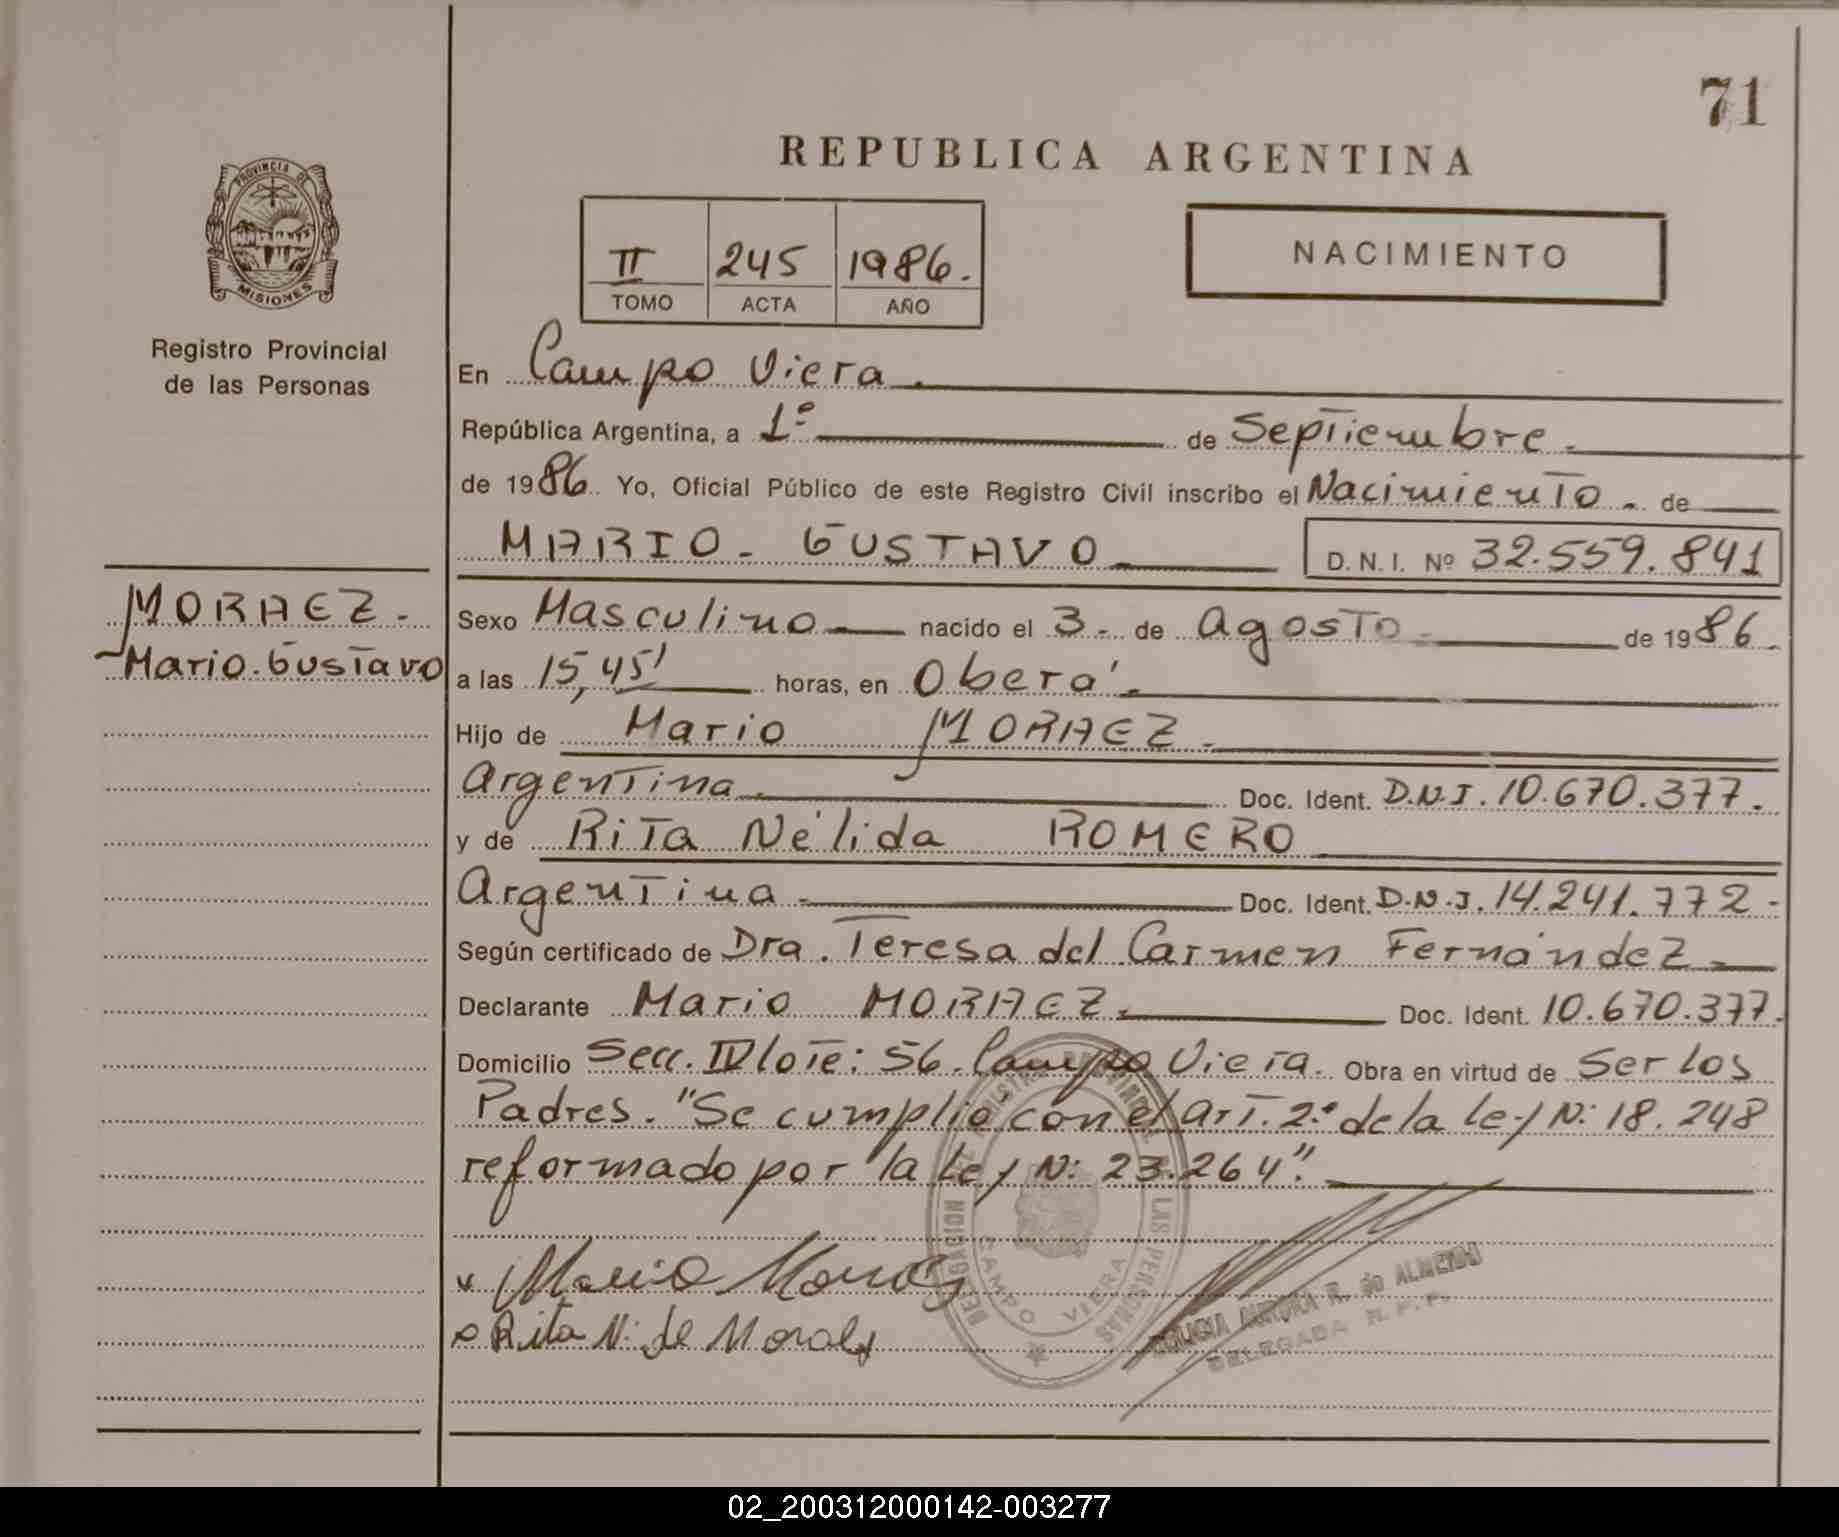 71
REPUBLICA ARGENTINA
PROVINCIA DE
MISIONES
Registro Provincial
de las Personas
II 245 1986.
TOMO ACTA AÑO
NACIMIENTO
En Campo Viera.
República Argentina, a 1º de Septiembre.
de 1986. Yo, Oficial Público de este Registro Civil inscribo el Nacimiento. de
MARIO. GUSTAVO D. N. I. Nº 32.559.841
MORAEZ.
Mario. Gustavo
Sexo Masculino nacido el 3. de Agosto de 1986.
a las 15,45' horas, en Oberá.
Hijo de Mario MORAEZ.
Argentina. Doc. Ident. D.N.I. 10.670.377.
y de Rita Nélida ROMERO
Argentina. Doc. Ident. D.N.I. 14.241.772.
Según certificado de Dra. Teresa del Carmen Fernández.
Declarante Mario MORAEZ. Doc. Ident. 10.670.377.
Domicilio Secc. IV lote: 56. Campo Viera. Obra en virtud de Ser los
Padres. "Se cumplió con el art. 2º de la Ley N: 18.248
reformado por la Ley N: 23.264".
DELEGACION EL REGISTRO PROVINCIAL DE LAS PERSONAS
CAMPO VIERA
Mario
Rita N. de
AURORA R. de ALMEIDA
DELEGADA R. P. P.
02_200312000142-003277